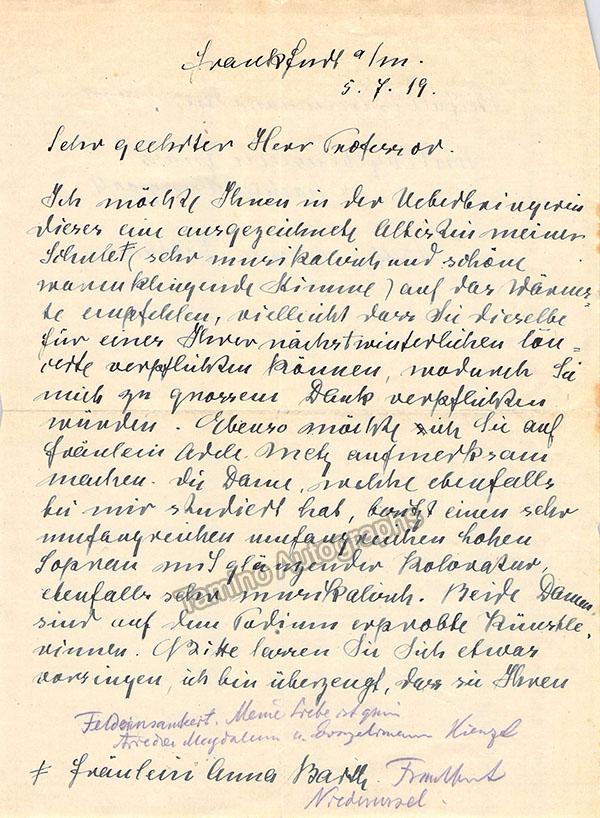 Frankfurt a/m.
5. 7. 19.
Sehr geehrter Herr Professor.
Ich möchte Ihnen in der Ueberbringerin
dieses eine ausgezeichnete Altistin meiner
Schule ⧧ (sehr musikalisch und schöne
warmklingende Stimme) auf das Wärms-
te empfehlen, vielleicht dass Sie dieselbe
für eines Ihrer nächstwinterlichen Con-
certe verpflichten können, wodurch Sie
mich zu grossem Dank verpflichten
würden. Ebenso möchte ich Sie auf
Fräulein Adele Metz aufmerksam
machen. Die Dame, welche ebenfalls
bei mir studiert hat, besitzt einen sehr
umfangreichen umfangreichen hohen
Sopran mit glänzender Koloratur,
ebenfalls sehr musikalisch. Beide Damen
sind auf dem Podium erprobte Künstle-
rinnen. Bitte lassen Sie Sich etwas
vorsingen, ich bin überzeugt, dass sie Ihnen
Feldeinsamkeit. Meine Liebe ist grün
Arie der Magdalena u. Evangelimann Kienzl
⧧ Fräulein Anna Barth. Frankfurt
Niederursel.
Tamino Autographs